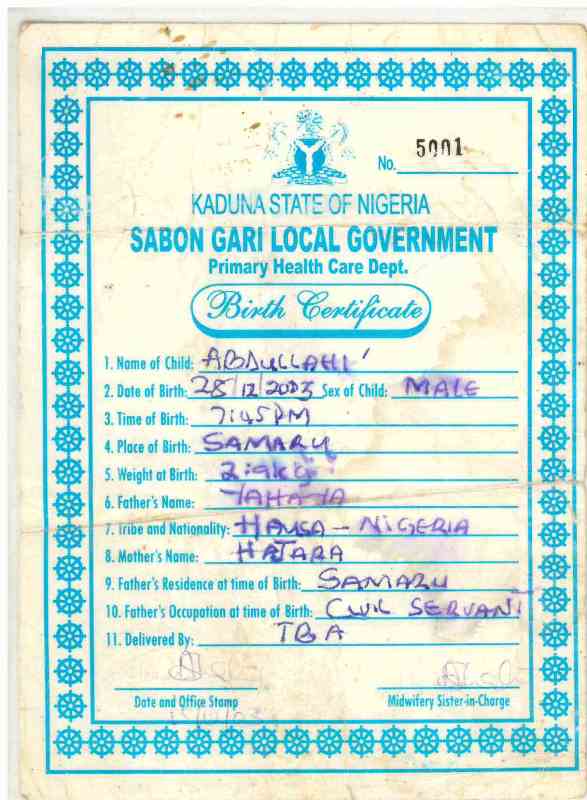 No. 5001
KADUNA STATE OF NIGERIA
SABON GARI LOCAL GOVERNMENT
Primary Health Care Dept.
Birth Certificate
1. Name of Child: ABDULLAHI
2. Date of Birth: 28/12/2003 Sex of Child: MALE
3. Time of Birth: 7:45 PM
4. Place of Birth: SAMARU
5. Weight at Birth: 2.9kg
6. Father's Name: YAHAYA
7. Tribe and Nationality: HAUSA - NIGERIA
8. Mother's Name: HAJARA
9. Father's Residence at time of Birth: SAMARU
10. Father's Occupation at time of Birth: CIVIL SERVANT
11. Delivered By: TBA
Date and Office Stamp Midwifery Sister-in-Charge